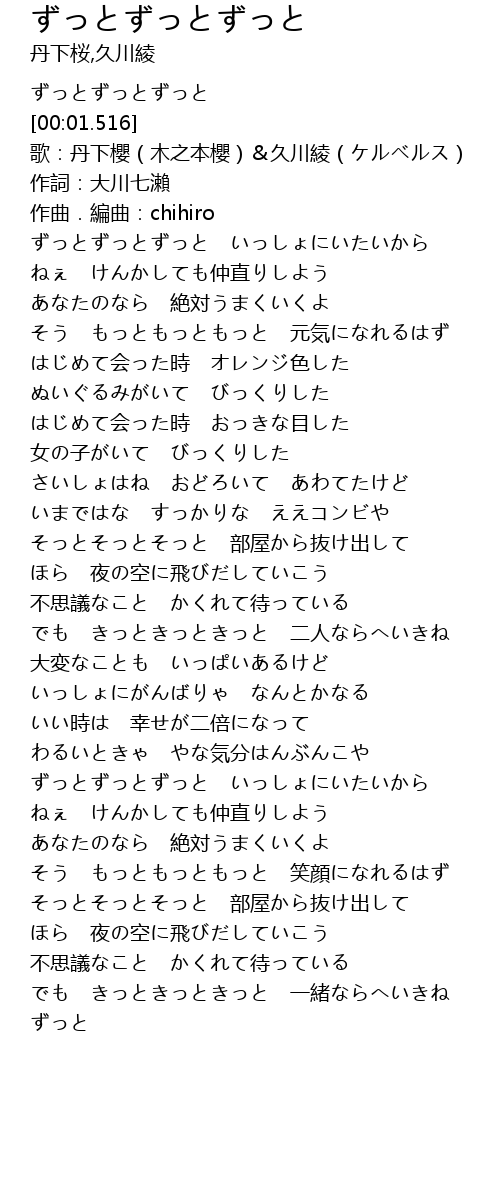 ずっとずっとずっと
丹下桜,久川綾
ずっとずっとずっと
[00:01.516]
歌：丹下櫻（木之本櫻）＆久川綾（ケルベルス）
作詞：大川七瀨
作曲．編曲：chihiro
ずっとずっとずっと　いっしょにいたいから
ねぇ　けんかしても仲直りしよう
あなたのなら　絶対うまくいくよ
そう　もっともっともっと　元気になれるはず
はじめて会った時　オレンジ色した
ぬいぐるみがいて　びっくりした
はじめて会った時　おっきな目した
女の子がいて　びっくりした
さいしょはね　おどろいて　あわてたけど
いまではな　すっかりな　ええコンビや
そっとそっとそっと　部屋から抜け出して
ほら　夜の空に飛びだしていこう
不思議なこと　かくれて待っている
でも　きっときっときっと　二人ならへいきね
大変なことも　いっぱいあるけど
いっしょにがんばりゃ　なんとかなる
いい時は　幸せが二倍になって
わるいときゃ　やな気分はんぶんこや
ずっとずっとずっと　いっしょにいたいから
ねぇ　けんかしても仲直りしよう
あなたのなら　絶対うまくいくよ
そう　もっともっともっと　笑顔になれるはず
そっとそっとそっと　部屋から抜け出して
ほら　夜の空に飛びだしていこう
不思議なこと　かくれて待っている
でも　きっときっときっと　一緒ならへいきね
ずっと